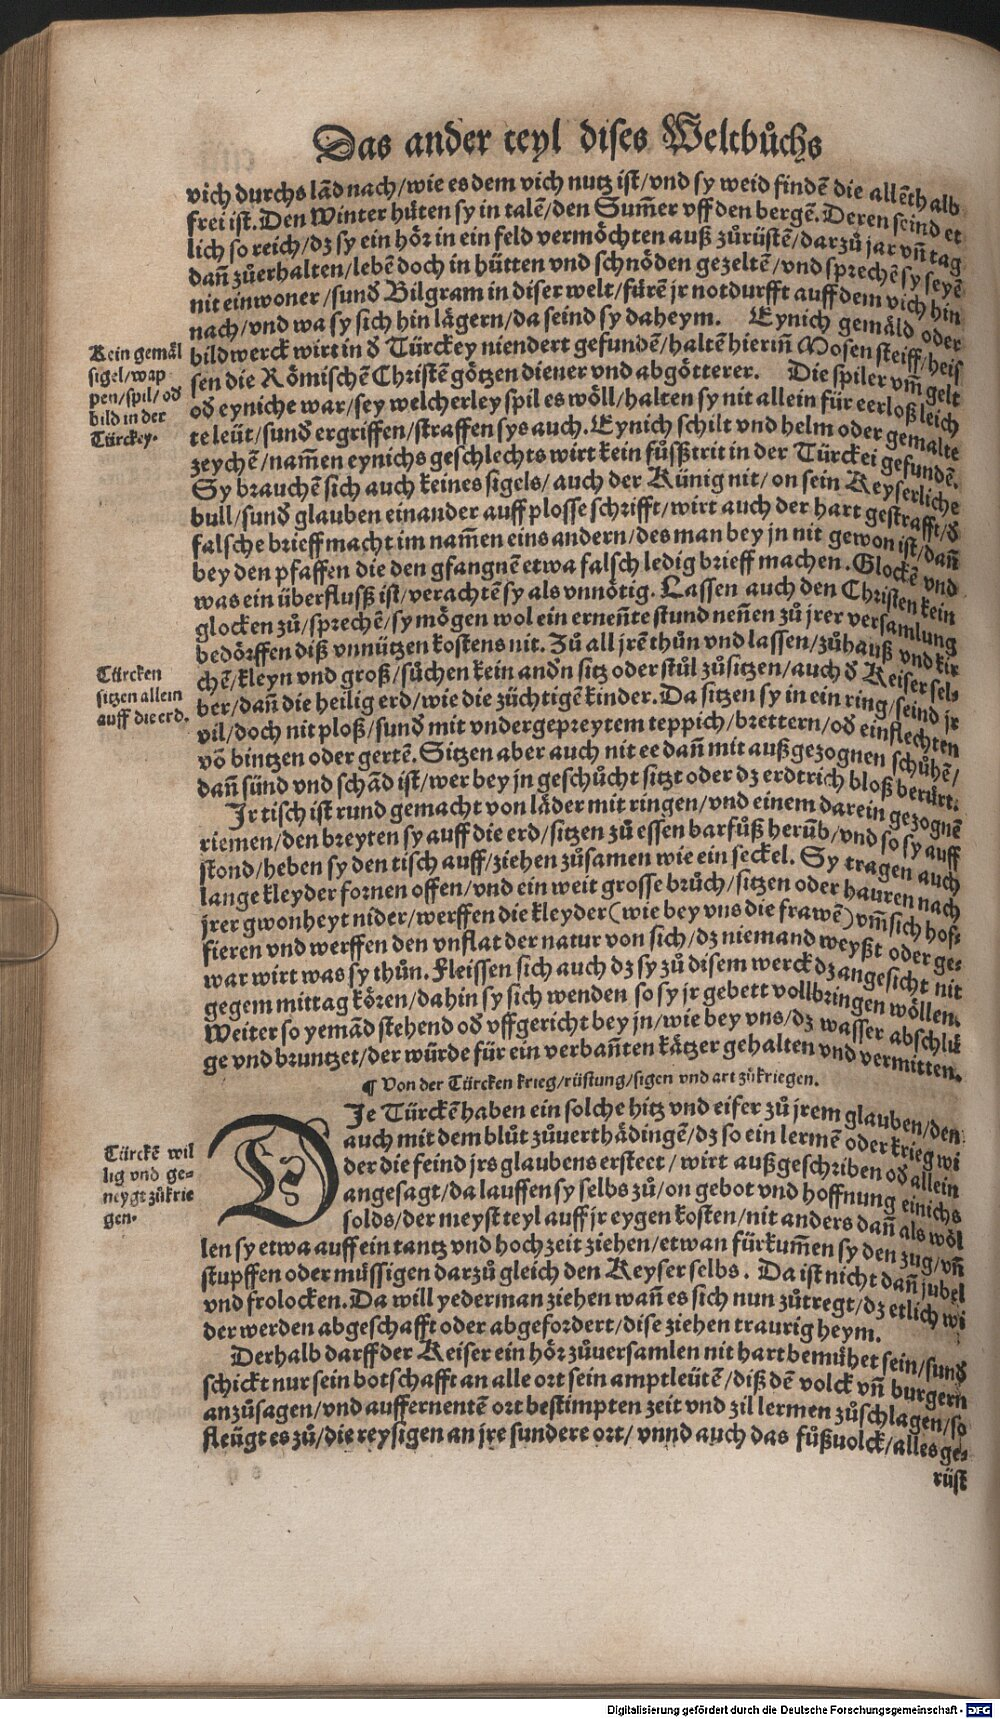 Das ander teyl dises Weltbůchs
vich durchs lãd nach/wie es dem vich nutz ist/vnd sy weid findẽ die allẽthalb
frei ist. Den Winter hůten sy in talẽ/den Sum̃er vff den bergẽ. Deren seind et
lich so reich/dz sy ein hör in ein feld vermöchten auß zůrüstẽ/dar zů jar vñ tag
dañ zůerhalten/lebẽ doch in hütten vnd schnöden gezeltẽ/vnd sprechẽ sy seyẽ
nit einwoner/sund Bilgram in diser welt/fürẽ jr notdurfft auff dem vich hin
nach/vnd wa sy sich hin lägern/da seind sy daheym. Eynich gemäld oder
bildwerck wirt in d Türckey niendert gefundẽ/haltẽ hieriñ Mosen steiff/heis
sen die Römischẽ Christẽ götzen diener vnd abgötterer. Die spiler vm̃ gelt
od eyniche war/sey welcherley spil es wöll/halten sy nit allein für eerloß leich
te leüt/sund ergriffen/straffen sys auch. Eynich schilt vnd helm oder gemalte
zeychẽ/nam̃en eynichs geschlechts wirt kein fůßtrit in der Türckei gefundẽ.
Sy brauchẽ sich auch keines sigels/auch der Künig nit/on sein Keyserliche
bull/sund glauben einander auff plosse schrifft/wirt auch der hart gestrafft/d
falsche brieff macht im nam̃en eins andern/des man bey jn nit gewon ist/dañ
bey den pfaffen die den gfangnẽ etwa falsch ledig brieff machen. Glockẽ vnd
was ein überfluß ist/verachtẽ sy als vnnötig. Lassen auch den Christen kein
glocken zů/sprechẽ/sy mögen wol ein erneñte stund neñen zů jrer versamlung
bedörffen diß vnnützen kostens nit. Zů all jrẽ thůn vnd lassen/zůhauß vnd kir
chẽ/kleyn vnd groß/sůchen kein andn sitz oder stůl zůsitzen/auch d Keiser sel-
ber/dañ die heilig erd/wie die züchtigẽ kinder. Da sitzen sy in ein ring/seind jr
vil/doch nit ploß/sund mit vndergepreytem teppich/brettern/od einflechten
võ bintzen oder gertẽ. Sitzen aber auch nit ee dañ mit außgezognen schůhẽ/
dañ sünd vnd schãd ist/wer bey jn geschůcht sitzt oder dz erdtrich bloß berůrt.
Jr tisch ist rund gemacht von läder mit ringen/vnd einem darein gezognẽ
riemen/den breyten sy auff die erd/sitzen zů essen barfůß herũb/vnd so sy auff
stond/heben sy den tisch auff/ziehen zůsamen wie ein seckel. Sy tragen auch
lange kleyder fornen offen/vnd ein weit grosse brůch/sitzen oder hauren nach
jrer gwonheyt nider/werffen die kleyder (wie bey vns die frawẽ) vm̃ sich hof-
fieren vnd werffen den vnflat der natur von sich/dz niemand weyßt oder ge-
war wirt was sy thůn. Fleissen sich auch dz sy zů disem werck dz angesicht nit
gegem mittag kören/dahin sy sich wenden so sy jr gebett vollbringen wöllen.
Weiter so yemãd stehend od vffgericht bey jn/wie bey vns/dz wasser abschlü
ge vnd bruntzet/der würde für ein verbañten kätzer gehalten vnd vermitten.
¶ Von der Türcken krieg/rüstung/sigen vnd art zůkriegen.
DJe Türckẽ haben ein solche hitz vnd eifer zů jrem glauben/den
auch mit dem blůt zůuerthädingẽ/dz so ein lermẽ oder krieg wi
der die feind jrs glaubens ersteet/wirt außgeschriben od allein
angesagt/da lauffen sy selbs zů/on gebot vnd hoffnung einichs
solds/der meyst teyl auff jr eygen kosten/nit anders dañ als wöl
len sy etwa auff ein tantz vnd hochzeit ziehen/etwan fürkum̃en sy den zug/vñ
stupffen oder müssigen darzů gleich den Keyser selbs. Da ist nicht dañ jubel
vnd frolocken. Da will yederman ziehen wañ es sich nun zůtregt/dz etlich wi
der werden abgeschafft oder abgefordert/dise ziehen traurig heym.
Derhalb darff der Keiser ein hör zůuersamlen nit hart bemůhet sein/sund
schickt nur sein botschafft an alle ort sein amptleütẽ/diß dẽ volck vñ burgern
anzůsagen/vnd auff ernentẽ ort bestimpten zeit vnd zil lermen zůschlagen/so
fleügt es zů/die reysigen an jre sundere ort/vnnd auch das fůßuolck/alles ge-
rüst
Kein gemäl
sigel/wap
pen/spil/od
bild in der
Türckey.
Türcken
sitzen allein
auff die erd.
Türckẽ wil
lig vnd ge-
neygt zůkrie
gen.
Digitalisierung gefördert durch die Deutsche Forschungsgemeinschaft - DFG